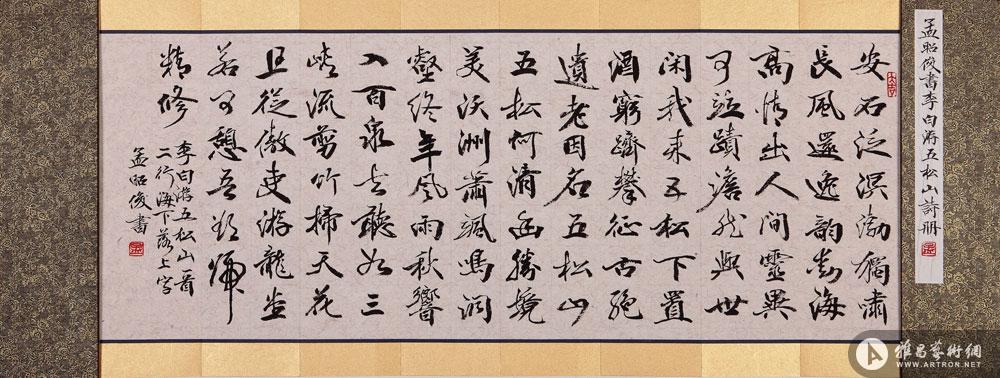 孟昭俊書李白游五松山詩册
安石泛溟渤獨嘯
長風還逸韵動海
高情出人間靈異
可竝蹟澹然與世
閑我來五松下置
酒窮躋攀征古絕
遺老因名五松山
五松何清幽勝境
美沃洲蕭颯鳴洞
壑終年風雨秋響
入百泉去聽如三
峽流剪竹掃天花
且從傲吏游龍堂
若可憩吾欲歸
精修
李白游五松山一首
二行海下落上字
孟昭俊書
雅昌藝術網
WWW.ARTRON.NET